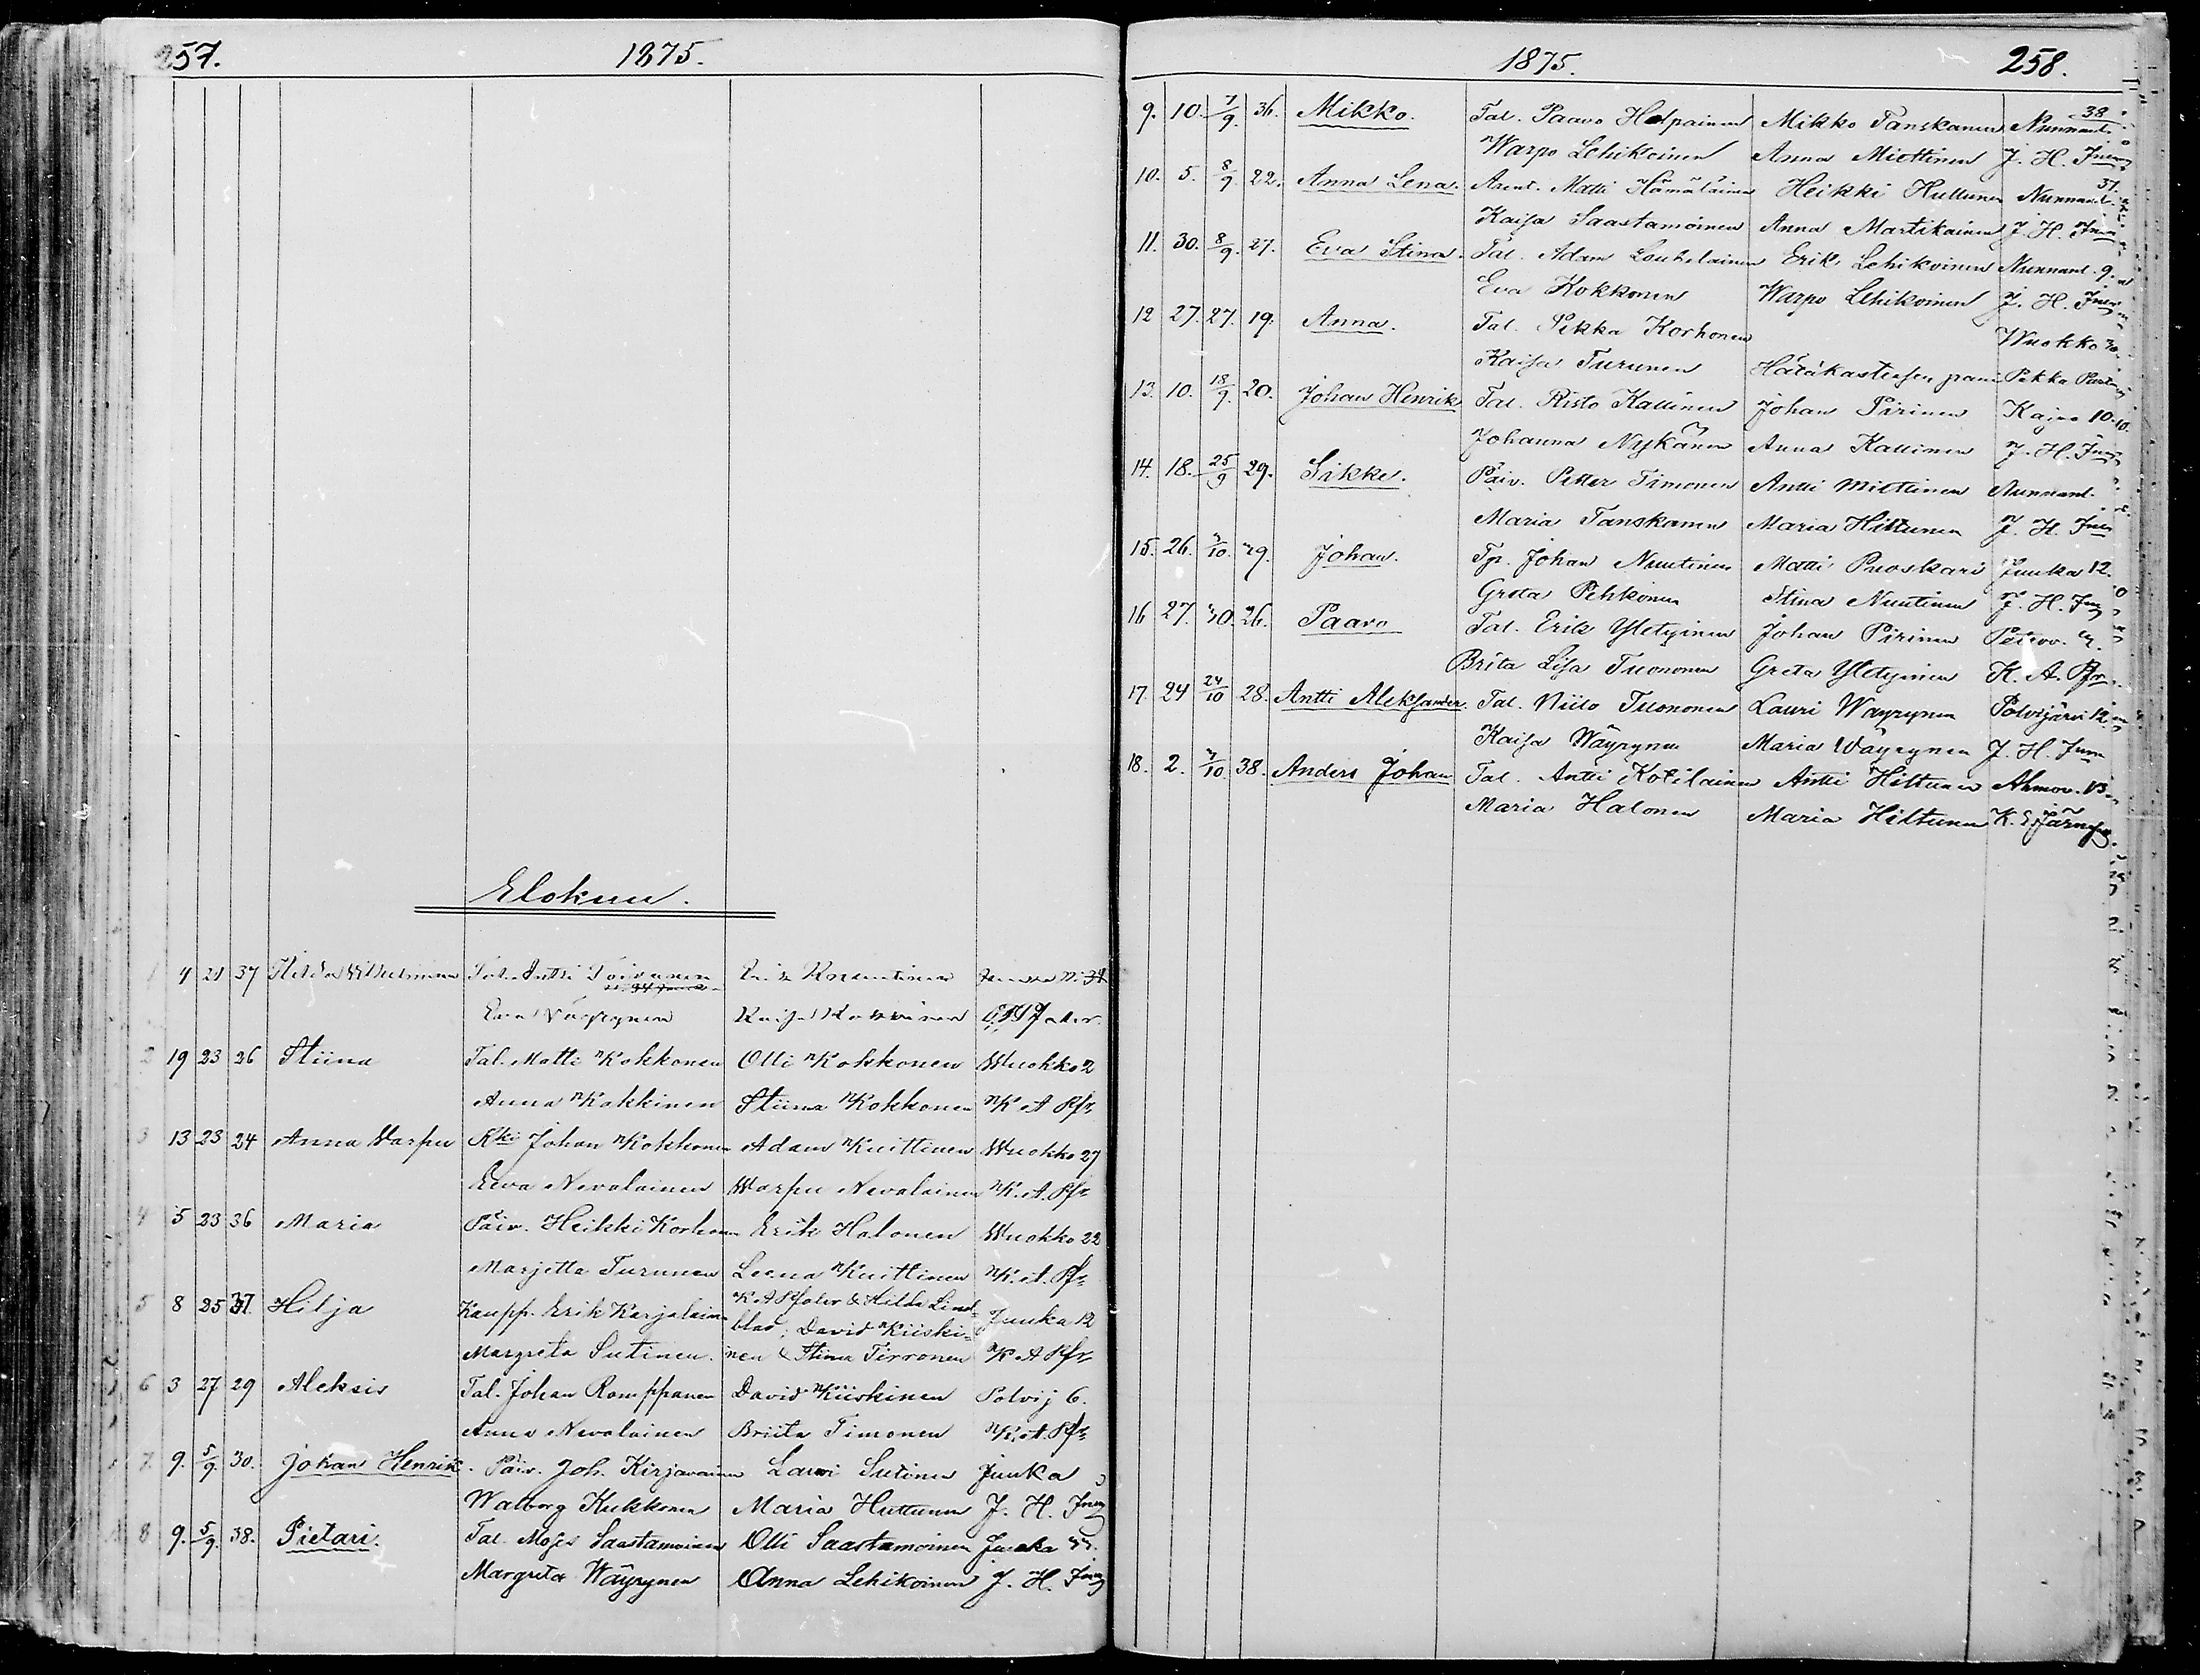 257. 1875.
Elokuu.
1 4 21 37 Hilda Wilhelmina Tal. Antti Toivanen
Eva Väyrynen
2 19 23 26 Stiina Tal. Matti Kokkonen Olli Kokkonen Wuokko 2
Anna Kokkinen Stiina Kokkonen K A Pfr
3 13 23 24 Anna Varpu Rki Johan Kokkonen Adam Kuittinen Wuokko 27
Eeva Nevalainen Warpu Nevalainen K. A. Pfr
4 5 23 36 Maria Päiv. Heikki Korhonen Erik Halonen Wuokko 22
Marjetta Turunen Leena Kuittinen K. A. Pfr
5 8 25 37 Hilja Kaupp. Erik Karjalainen K A Pfaler & Hilda Lind= Juuka 12
blad; David Kiiski=
Margreta Sutinen. nen & Stiina Tirronen K A Pfr
6 3 27 29 Aleksis Tal. Johan Romppanen David Kiiskinen Polvij 6.
Anna Nevalainen Briita Timonen K. A. Pfr
7. 9. 5/9. 30. Johan Henrik. Päiv. Joh. Kirjavainen Lauri Sutinen Juuka
Walborg Kukkonen Maria Huttunen J. H.
8 9. 5/9. 38. Pietari. Tal. Moses Saastamoinen Olli Saastamoinen Juuka
Margreta Wäyrynen Anna Lehikoinen J. H.
1875. 258.
9. 10. 7/9. 36. Mikko. Tal. Paavo Holpainen Mikko Tanskanen Nunnanl. 38
Warpo Lehikoinen Anna Miettinen J. H.
10. 5. 8/9. 22. Anna Lena. Arent. Matti Hämäläinen Heikki Hultunen Nunnanl. 37.
Kaisa Saastamoinen Anna Martikainen J. H.
11. 30. 8/9. 27. Eva Stina. Tal. Adam Louhelainen Erik Lehikoinen Nunnanl. 9.
Eva Kokkonen Warpo Lehikoinen J. H.
12 27. 27. 19. Anna. Tal. Pekka Korhonen Wuokko
Kaisa Turunen Hätäkasteesen pani Pekka
13. 10. 18/9. 20. Johan Henrik Tal. Risto Kallinen Johan Pirinen Kajoo 10.
Johanna Nykänen Anna Kallinen J. H.
14. 18. 25/9 29. Sikke. Päiv. Petter Timonen Antti Miettinen Nunnanl.
Maria Tanskanen Maria Hiltunen J. H.
15. 26. /10. 29. Johan. Tp. Johan Nuutinen Matti Puoskari Juuka 12.
Greta Pehkonen Stina Nuutinen J. H.
16 27. 26. Paavo Tal. Erik Yletyinen Johan Pirinen
Brita Lisa Tuononen Greta Yletyinen K. A. Pfr
17. 24 24/10 28. Antti Aleksander. Tal. Niilo Tuononen Lauri Wäyrynen Polvijärvi 12.
Kaisa Wäyrynen Maria Wäyrynen J. H.
18. 2. /10 38. Anders Johan Tal. Antti Kotilainen Antti Hiltunen Ahmov. 13
Maria Halonen Maria Hiltunen K.